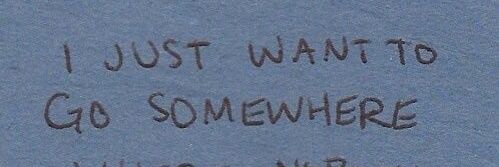 I JUST WANT TO
GO SOMEWHERE